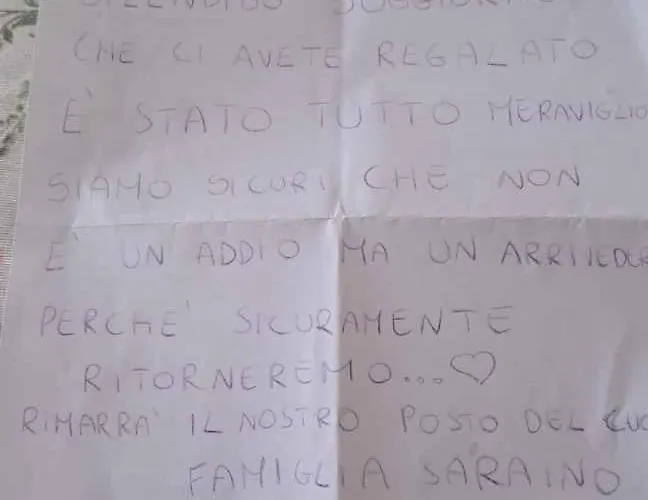 SPLENDIDO SOGGIORNO
CHE CI AVETE REGALATO
E' STATO TUTTO MERAVIGLIO
SIAMO SICURI CHE NON
E' UN ADDIO MA UN ARRIVEDER
PERCHE' SICURAMENTE
RITORNEREMO...♡
RIMARRA' IL NOSTRO POSTO DEL CUO
FAMIGLIA SARAINO